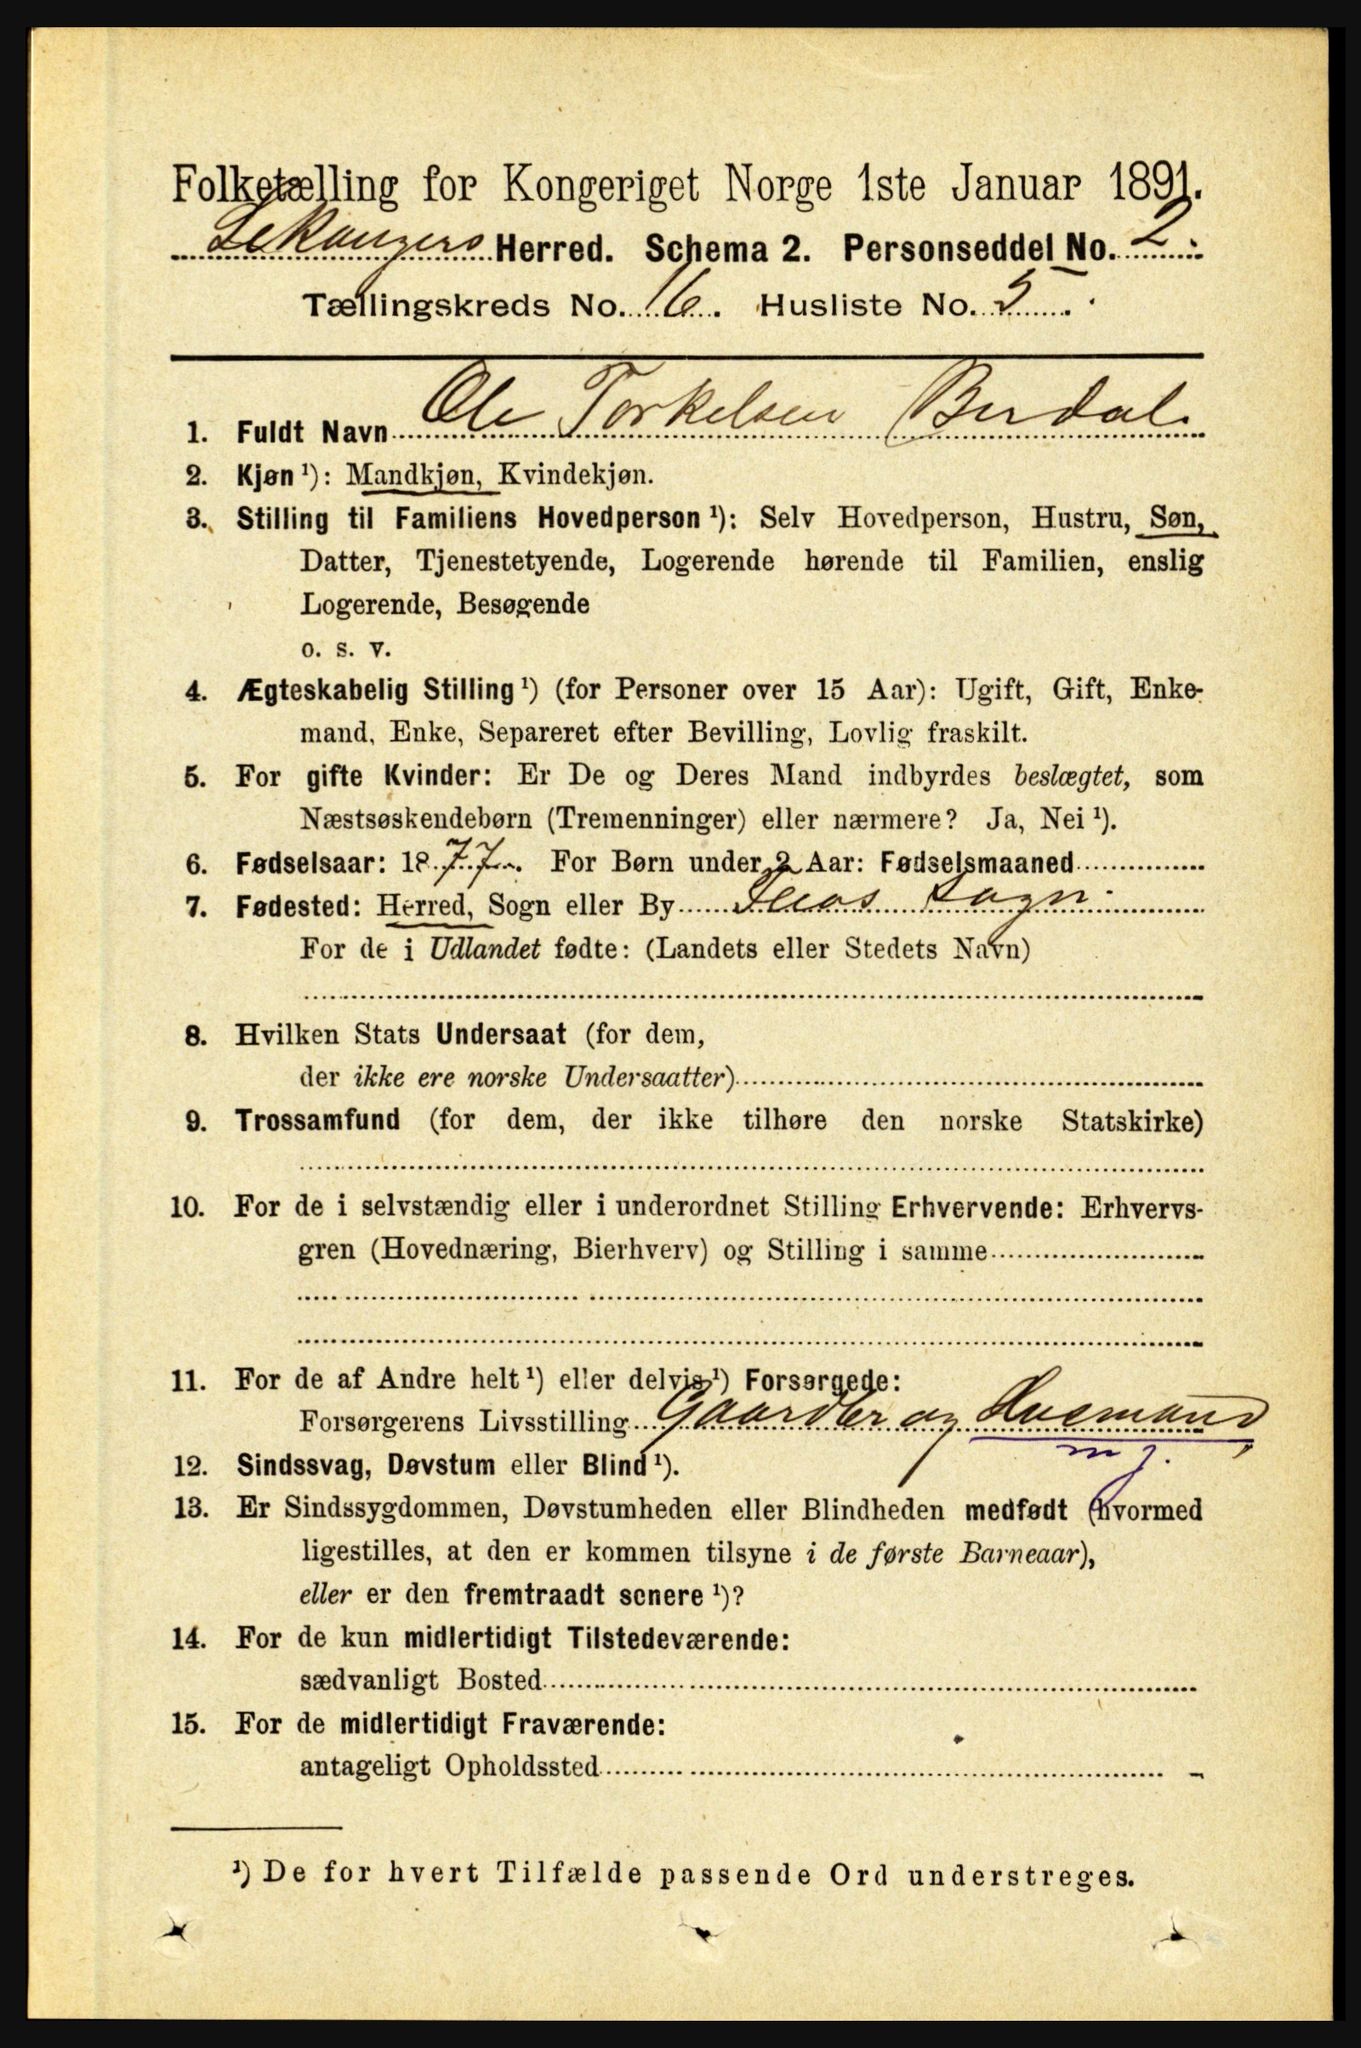 Folketælling for Kongeriget Norge 1ste Januar 1891.
Lekanger Herred. Schema 2. Personseddel No. 2.
Tællingskreds No. 16. Husliste No. 5.
1. Fuldt Navn Ole Torkelsen Berdal
2. Kjøn ¹): Mandkjøn, Kvindekjøn.
3. Stilling til Familiens Hovedperson ¹): Selv Hovedperson, Hustru, Søn,
Datter, Tjenestetyende, Logerende hørende til Familien, enslig
Logerende, Besøgende
o. s. v.
4. Ægteskabelig Stilling ¹) (for Personer over 15 Aar): Ugift, Gift, Enke-
mand, Enke, Separeret efter Bevilling, Lovlig fraskilt.
5. For gifte Kvinder: Er De og Deres Mand indbyrdes beslægtet, som
Næstsøskendebørn (Tremenninger) eller nærmere? Ja, Nei ¹).
6. Fødselsaar: 1877. For Børn under 2 Aar: Fødselsmaaned
7. Fødested: Herred, Sogn eller By Sogn
For de i Udlandet fødte: (Landets eller Stedets Navn)
8. Hvilken Stats Undersaat (for dem,
der ikke ere norske Undersaatter)
9. Trossamfund (for dem, der ikke tilhøre den norske Statskirke)
10. For de i selvstændig eller i underordnet Stilling Erhvervende: Erhvervs-
gren (Hovednæring, Bierhverv) og Stilling i samme
11. For de af Andre helt ¹) eller delvis ¹) Forsørgede:
Forsørgerens Livsstilling Gaardbr og Husmand
m j.
12. Sindssvag, Døvstum eller Blind ¹).
13. Er Sindssygdommen, Døvstumheden eller Blindheden medfødt (hvormed
ligestilles, at den er kommen tilsyne i de første Barneaar),
eller er den fremtraadt senere ¹)?
14. For de kun midlertidigt Tilstedeværende:
sædvanligt Bosted
15. For de midlertidigt Fraværende:
antageligt Opholdssted
¹) De for hvert Tilfælde passende Ord understreges.